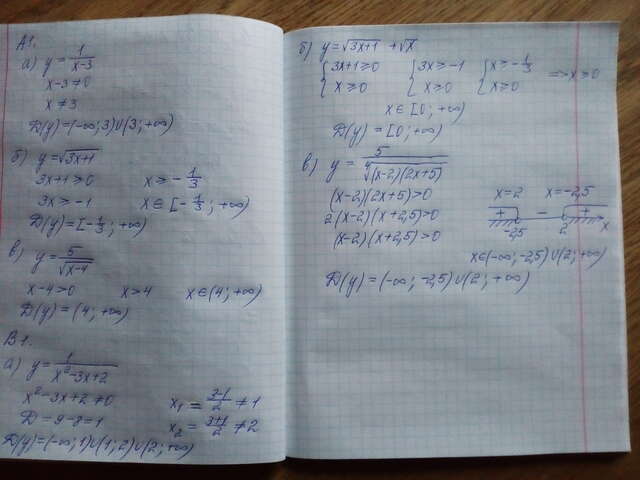 А1.
а) y = 1/(x-3)
x-3≠0
x≠3
D(y)=(-∞;3)∪(3;+∞)
б) y=√(3x+1)
3x+1≥0 x≥-1/3
3x≥-1 x∈[-1/3;+∞)
D(y)=[-1/3;+∞)
в) y=5/√(x-4)
x-4>0 x>4 x∈(4;+∞)
D(y)=(4;+∞)
В1.
а) y=1/(x²-3x+2)
x²-3x+2≠0 x₁=(3-1)/2≠1
D=9-8=1 x₂=(3+1)/2≠2
D(y)=(-∞;1)∪(1;2)∪(2;+∞)
б) y=√(3x+1)+√x
{3x+1≥0 {3x≥-1 {x≥-1/3
{x≥0 {x≥0 {x≥0 => x≥0
x∈[0;+∞)
D(y)=[0;+∞)
в) y=5/⁴√((x-2)(2x+5))
(x-2)(2x+5)>0 x=2 x=-2,5
2(x-2)(x+2,5)>0 + - +
(x-2)(x+2,5)>0 -2,5 2 x
x∈(-∞;-2,5)∪(2;+∞)
D(y)=(-∞;-2,5)∪(2;+∞)